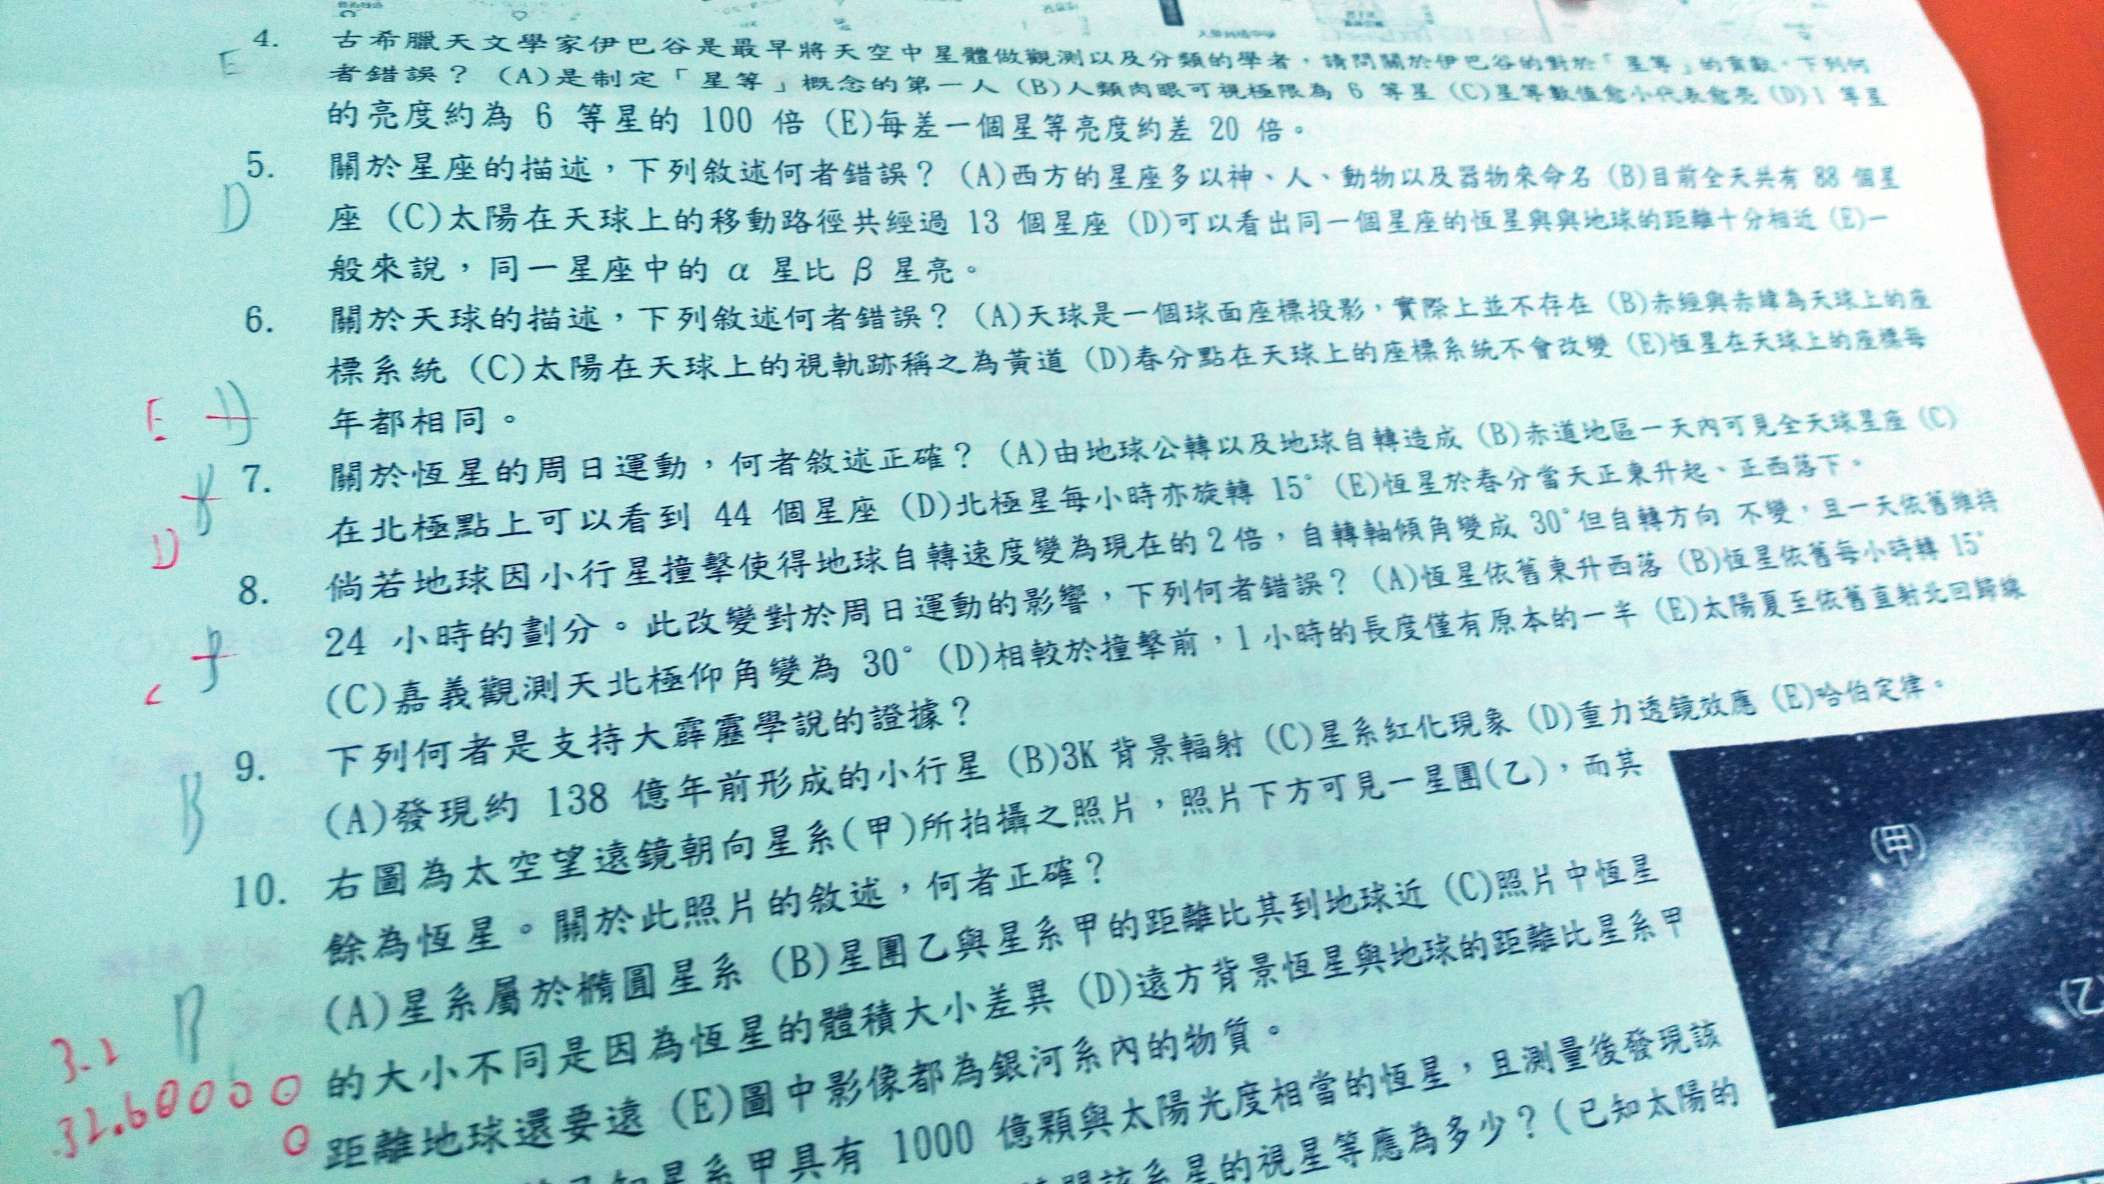 4. 古希臘天文學家伊巴谷是最早將天空中星體做觀測以及分類的學者，請問關於伊巴谷的對於「星等」的貢獻，下列何
E
者錯誤？ (A)是制定「星等」概念的第一人 (B)人類肉眼可視極限為 6 等星 (C)星等數值愈小代表愈亮 (D)1 等星
的亮度約為 6 等星的 100 倍 (E)每差一個星等亮度約差 20 倍。
5. 關於星座的描述，下列敘述何者錯誤？ (A)西方的星座多以神、人、動物以及器物來命名 (B)目前全天共有 88 個星
D
座 (C)太陽在天球上的移動路徑共經過 13 個星座 (D)可以看出同一個星座的恆星與與地球的距離十分相近 (E)一
般來說，同一星座中的 α 星比 β 星亮。
6. 關於天球的描述，下列敘述何者錯誤？ (A)天球是一個球面座標投影，實際上並不存在 (B)赤經與赤緯為天球上的座
標系統 (C)太陽在天球上的視軌跡稱之為黃道 (D)春分點在天球上的座標系統不會改變 (E)恆星在天球上的座標每
E D
年都相同。
7. 關於恆星的周日運動，何者敘述正確？ (A)由地球公轉以及地球自轉造成 (B)赤道地區一天內可見全天球星座 (C)
在北極點上可以看到 44 個星座 (D)北極星每小時亦旋轉 15° (E)恆星於春分當天正東升起、正西落下。
D
8. 倘若地球因小行星撞擊使得地球自轉速度變為現在的2倍，自轉軸傾角變成 30°但自轉方向 不變，且一天依舊維持
24 小時的劃分。此改變對於周日運動的影響，下列何者錯誤？ (A)恆星依舊東升西落 (B)恆星依舊每小時轉 15°
(C)嘉義觀測天北極仰角變為 30° (D)相較於撞擊前，1小時的長度僅有原本的一半 (E)太陽夏至依舊直射北回歸線
C
9. 下列何者是支持大霹靂學說的證據？
B
(A)發現約 138 億年前形成的小行星 (B)3K 背景輻射 (C)星系紅化現象 (D)重力透鏡效應 (E)哈伯定律。
10. 右圖為太空望遠鏡朝向星系(甲)所拍攝之照片，照片下方可見一星團(乙)，而其
餘為恆星。關於此照片的敘述，何者正確？
(A)星系屬於橢圓星系 (B)星團乙與星系甲的距離比其到地球近 (C)照片中恆星
的大小不同是因為恆星的體積大小差異 (D)遠方背景恆星與地球的距離比星系甲
距離地球還要遠 (E)圖中影像都為銀河系內的物質。
星系甲具有 1000 億顆與太陽光度相當的恆星，且測量後發現該
該系星的視星等應為多少？(已知太陽的
(甲)
(乙
3.2
32.60000
0